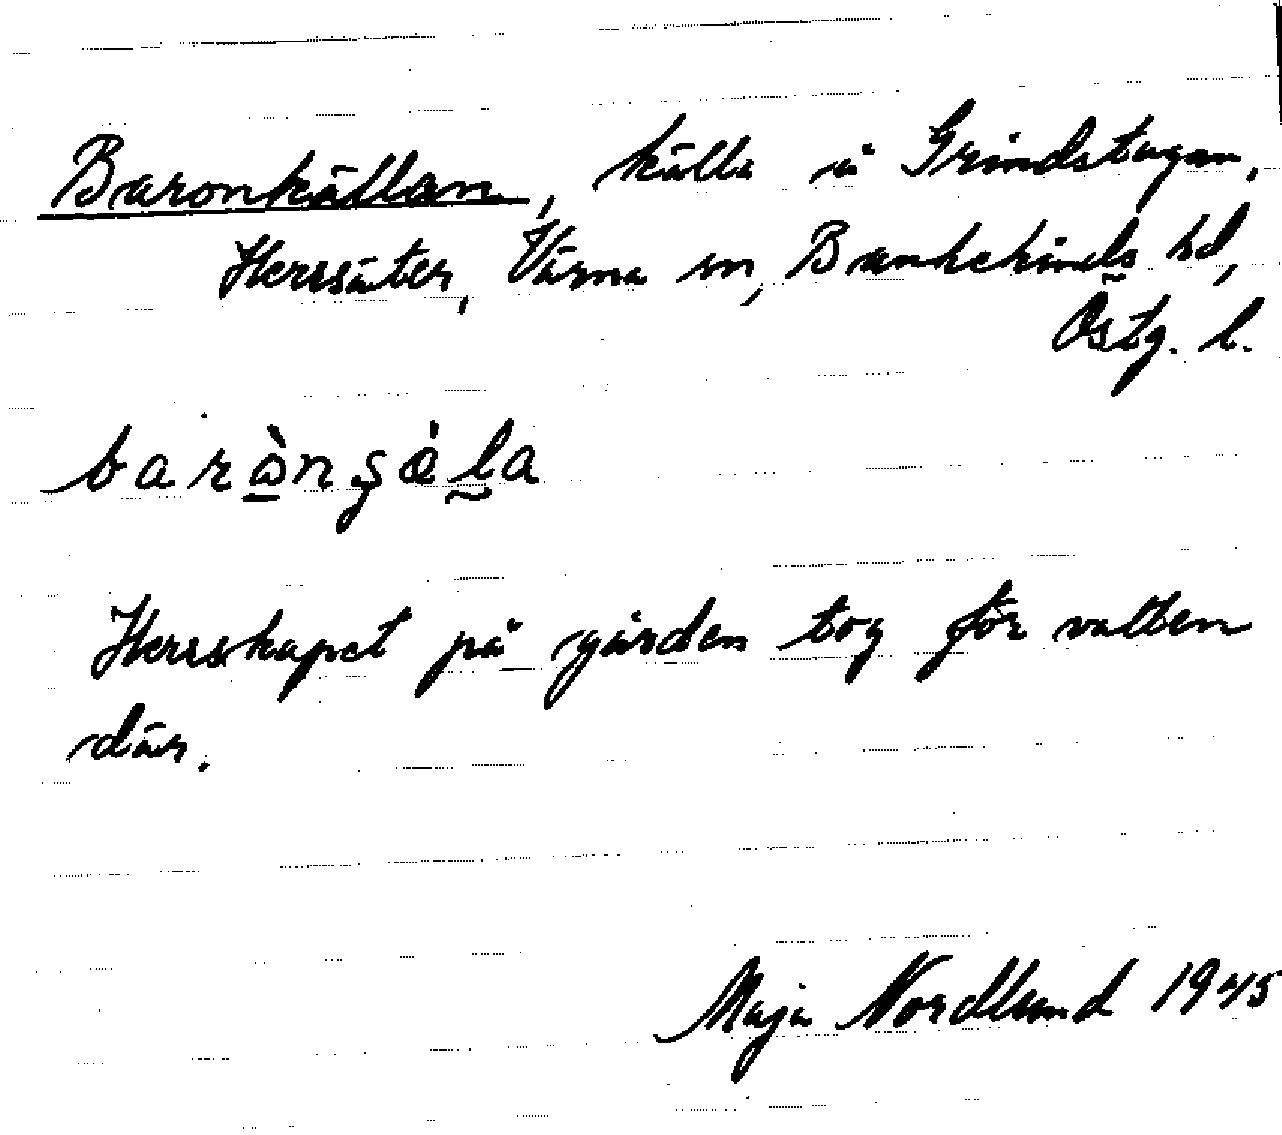 Baronkällan, källa å Grindstugan,
Herrsäter, Värna sn, Bankekinds hd,
Östg. l.
baròngǽla
Herrskapet på gården tog för vatten
där.
Maja Nordlund 1945